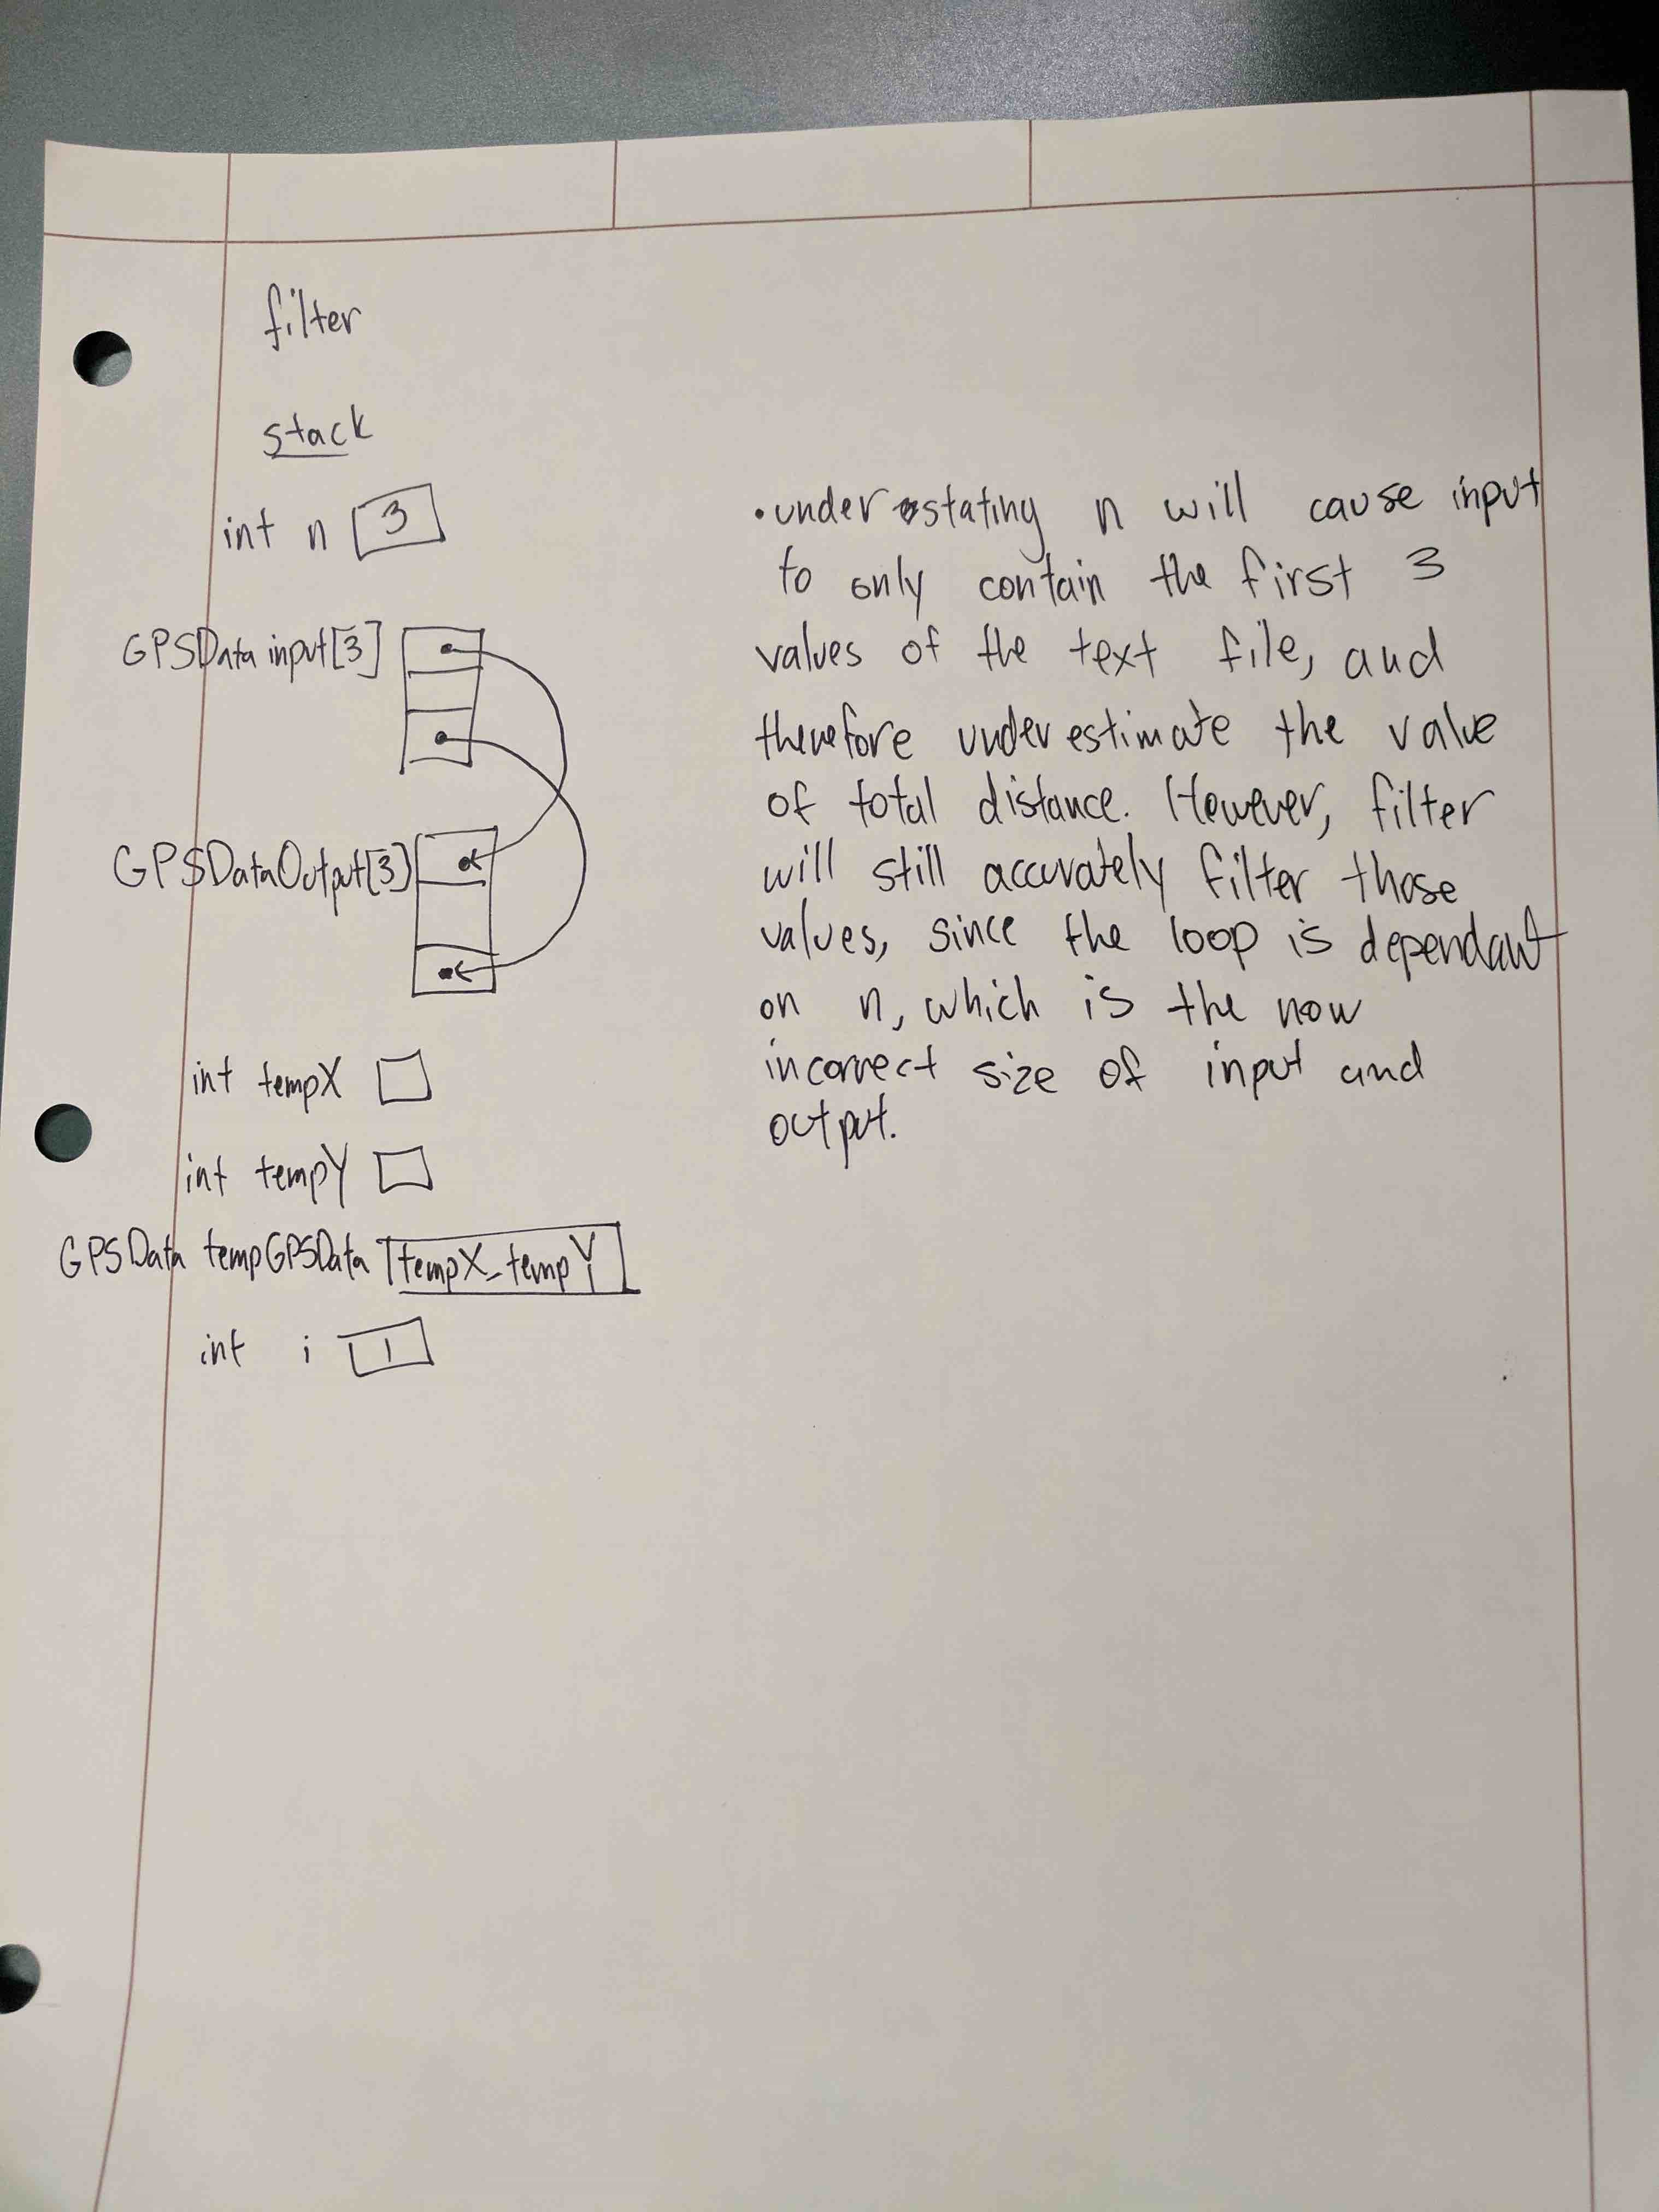 filter
stack
int n 3
GPSData input[3]
GPSDataOutput[3]
int tempX
int tempY
GPSData tempGPSData tempX, tempY
int i 1
• under stating n will cause input
to only contain the first 3
values of the text file, and
therefore underestimate the value
of total distance. However, filter
will still accurately filter those
values, since the loop is dependant
on n, which is the now
incorrect size of input and
output.